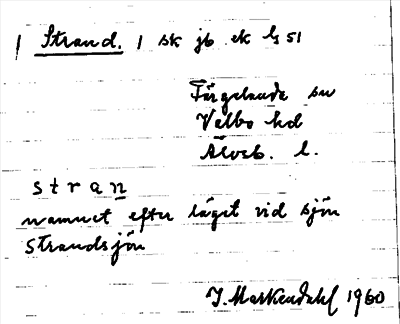 Strand. 1 sk jb ek lz 51
Färgelanda sn
Valbo hd
Älvsb. l.
s t r a n
namnet efter läget vid sjön
Strandsjön
J. Markendahl 1960